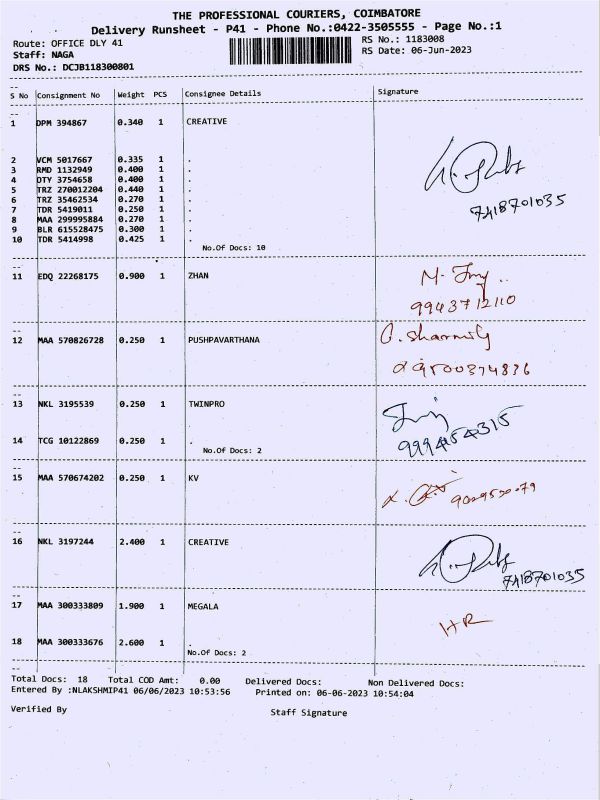 THE PROFESSIONAL COURIERS, COIMBATORE
Delivery Runsheet - P41 - Phone No.:0422-3505555 - Page No.:1
Route: OFFICE DLY 41 RS No.: 1183008
Staff: NAGA RS Date: 06-Jun-2023
DRS No.: DCJB118300801
S No Consignment No Weight PCS Consignee Details Signature
1 DPM 394867 0.340 1 CREATIVE
2 VCM 5017667 0.335 1 .
3 RMD 1132949 0.400 1 .
4 DTY 3754658 0.400 1 .
5 TRZ 270012204 0.440 1 .
6 TRZ 35462534 0.270 1 .
7 TDR 5419011 0.250 1 .
8 MAA 299995884 0.270 1 .
9 BLR 615528475 0.300 1 .
10 TDR 5414998 0.425 1 .
7418701035
No.Of Docs: 10
11 EDQ 22268175 0.900 1 ZHAN
9943712110
12 MAA 570826728 0.250 1 PUSHPAVARTHANA
13 NKL 3195539 0.250 1 TWINPRO
14 TCG 10122869 0.250 1 .
No.Of Docs: 2
15 MAA 570674202 0.250 1 KV
16 NKL 3197244 2.400 1 CREATIVE
7418701035
17 MAA 300333809 1.900 1 MEGALA
HR
18 MAA 300333676 2.600 1 .
No.Of Docs: 2
Total Docs: 18 Total COD Amt: 0.00 Delivered Docs: Non Delivered Docs:
Entered By :NLAKSHMIP41 06/06/2023 10:53:56 Printed on: 06-06-2023 10:54:04
Verified By Staff Signature